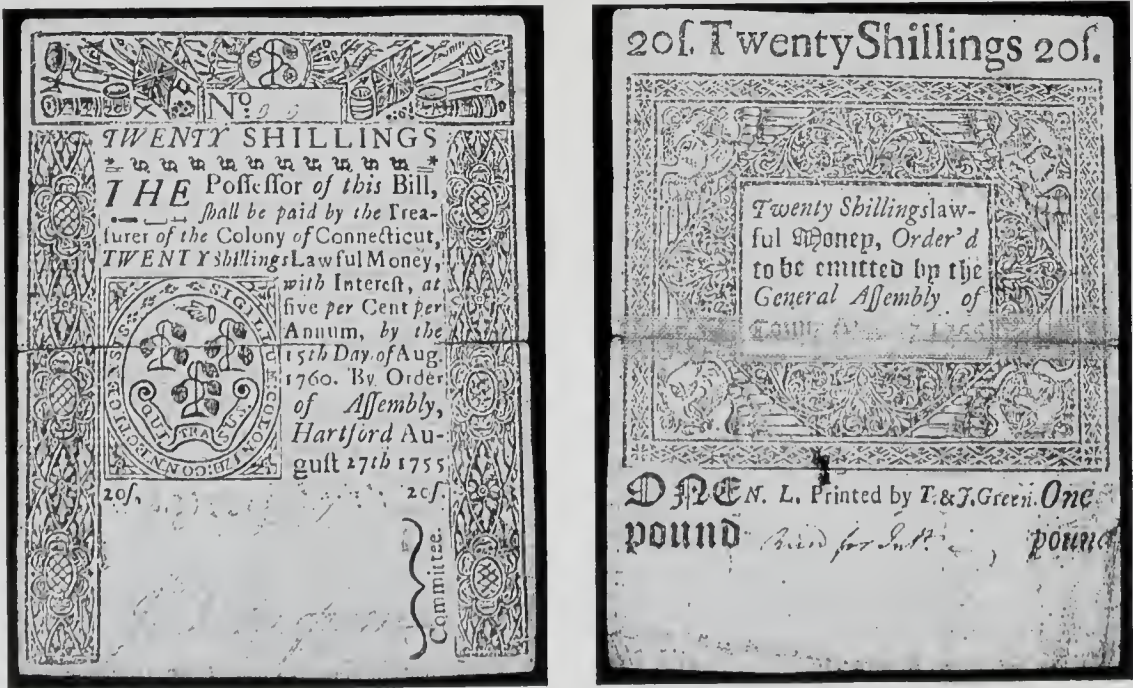 No
TWENTY SHILLINGS
THE Poſſeſſor of this Bill,
ſhall be paid by the Trea-
ſurer of the Colony of Connecticut,
TWENTY ShillingsLawful Money,
with Intereſt, at
five per Cent per
Annum, by the
15th Day of Aug.
1760. By Order
of Aſſembly,
Hartford Au-
guſt 27th 1755
SIGILLUM COLONIÆ CONNECTICENSIS
QUI TRA SUS
20ſ. 20ſ.
Committee.
20ſ. Twenty Shillings 20ſ.
Twenty Shillingslaw-
ful Money, Order'd
to be emitted by the
General Aſſembly of
1755
ONE N. L. Printed by T. & J. Green. One
pound pound